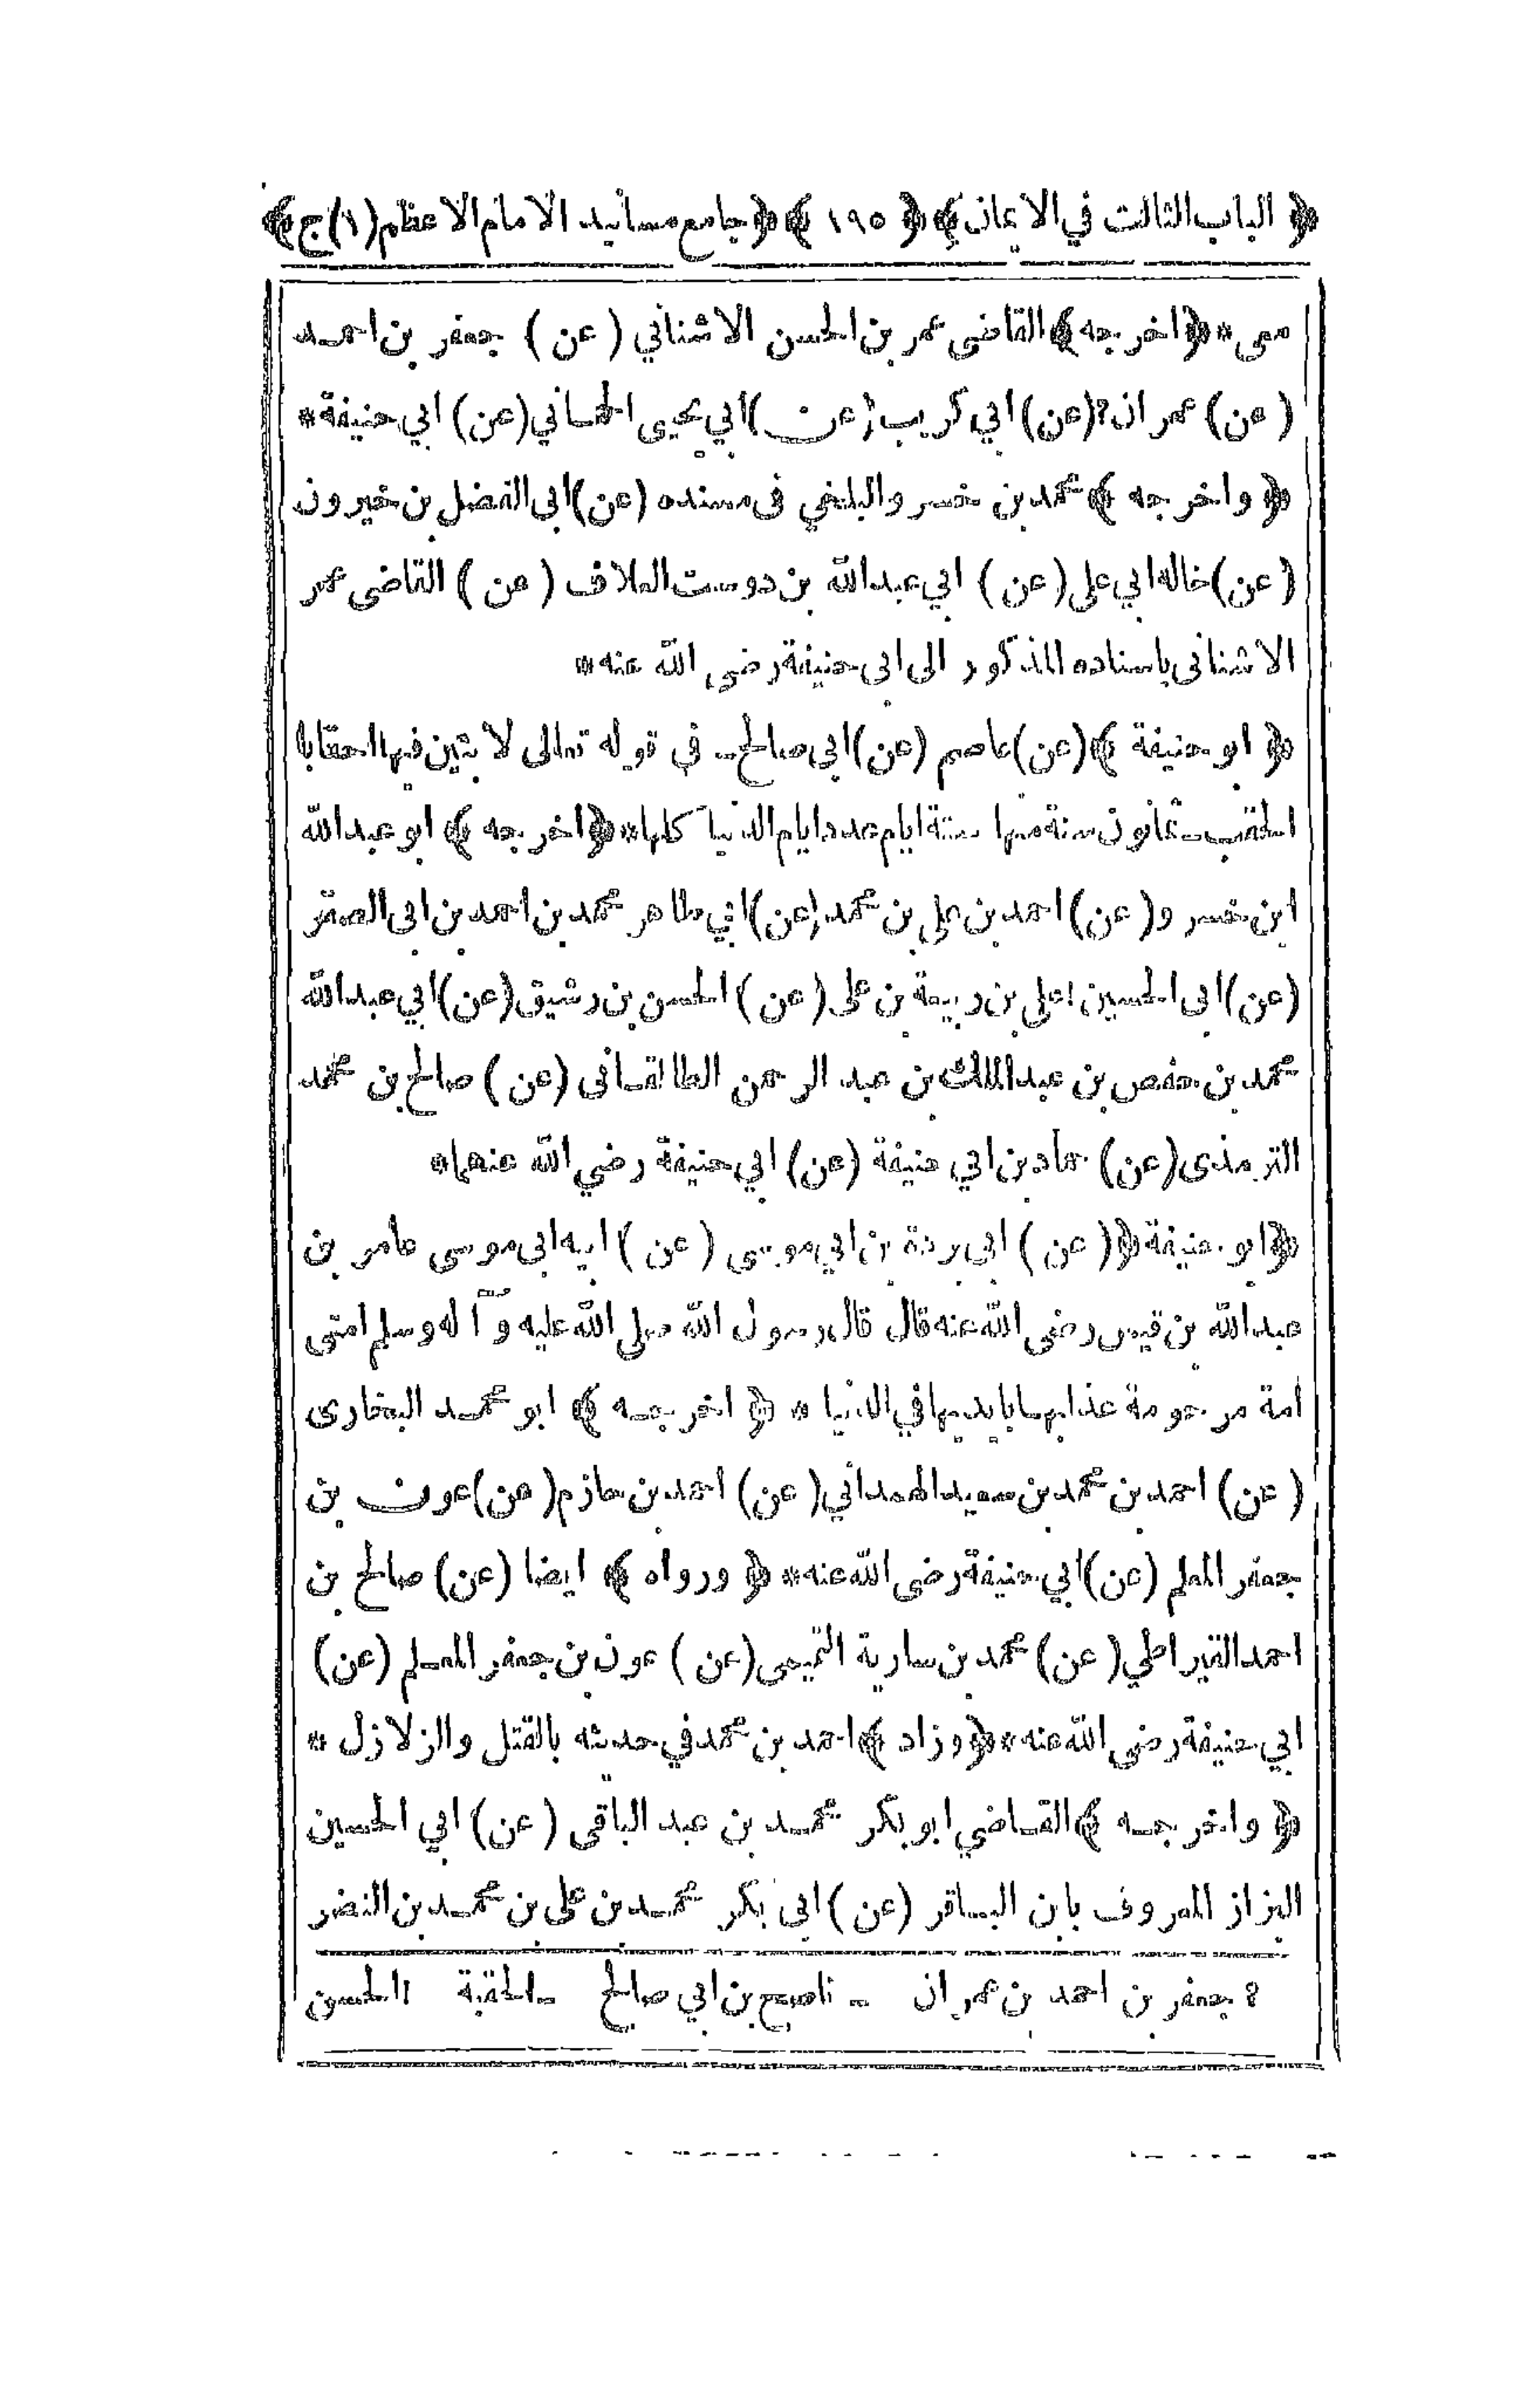 ﴿ الباب الثالث في الايمان ﴾ ﴿ ١٩٥ ﴾ ﴿ جامع مسانيد الامام الاعظم (١) ج ﴾
معى * ﴿ اخرجه ﴾ القاضى عمر بن الحسن الاشناني ( عن ) جعفر بن احمد
( عن ) عمران ? (عن) ابي كريب (عن) ابي يحيى الحماني (عن) ابي حنيفة *
﴿ واخرجه ﴾ محمد بن خسرو البلخي فى مسنده (عن) ابى الفضل بن خيرون
( عن ) خاله ابي على ( عن ) ابي عبدالله بن دوست العلاف ( عن ) القاضى عمر
الاشنانى باسناده المذكور الى ابى حنيفة رضى الله عنه *
﴿ ابو حنيفة ﴾ (عن) عاصم (عن) ابى صالح ـ في قوله تعالى لا بثين فيها احقابا
الحقب ـ ثمانون سنة منها ستة ايام عدد ايام الدنيا كلها * ﴿ اخرجه ﴾ ابو عبدالله
ابن خسرو ( عن ) احمد بن على بن محمد (عن) ابي طاهر محمد بن احمد بن ابى الصقر
(عن) ابى الحسين ا على بن ربيعة بن على ( عن ) الحسن بن رشيق (عن) ابي عبدالله
محمد بن حفص بن عبدالملك بن عبد الرحمن الطالقانى (عن ) صالح بن محمد
الترمذى (عن) حماد بن ابي حنيفة (عن) ابي حنيفة رضي الله عنهما *
﴿ ابو حنيفة ﴾ ( عن ) ابى بردة بن ابي موسى ( عن ) ابيه ابى موسى عامر بن
عبدالله بن قيس رضى الله عنه قال قال رسول الله صلى الله عليه وآله وسلم امتى
امة مرحومة عذابها بايديها في الدنيا * ﴿ اخرجه ﴾ ابو محمد البخارى
( عن ) احمد بن محمد بن سعيد الهمداني ( عن ) احمد بن حازم ( عن ) عون بن
جعفر المعلم (عن) ابي حنيفة رضى الله عنه * ﴿ ورواه ﴾ ايضا (عن) صالح بن
احمد القيراطي ( عن ) محمد بن سارية التميمى (عن ) عون بن جعفر المعلم (عن)
ابي حنيفة رضى الله عنه * ﴿ وزاد ﴾ احمد بن محمد في حديثه بالقتل والزلازل *
﴿ واخرجه ﴾ القاضي ابو بكر محمد بن عبد الباقى ( عن ) ابي الحسين
البزاز المعروف بابن الباقر (عن ) ابى بكر محمد بن على بن محمد بن النضر
? جعفر بن احمد بن عمران ـ ناصح بن ابي صالح ـ الحقبة ا الحسن